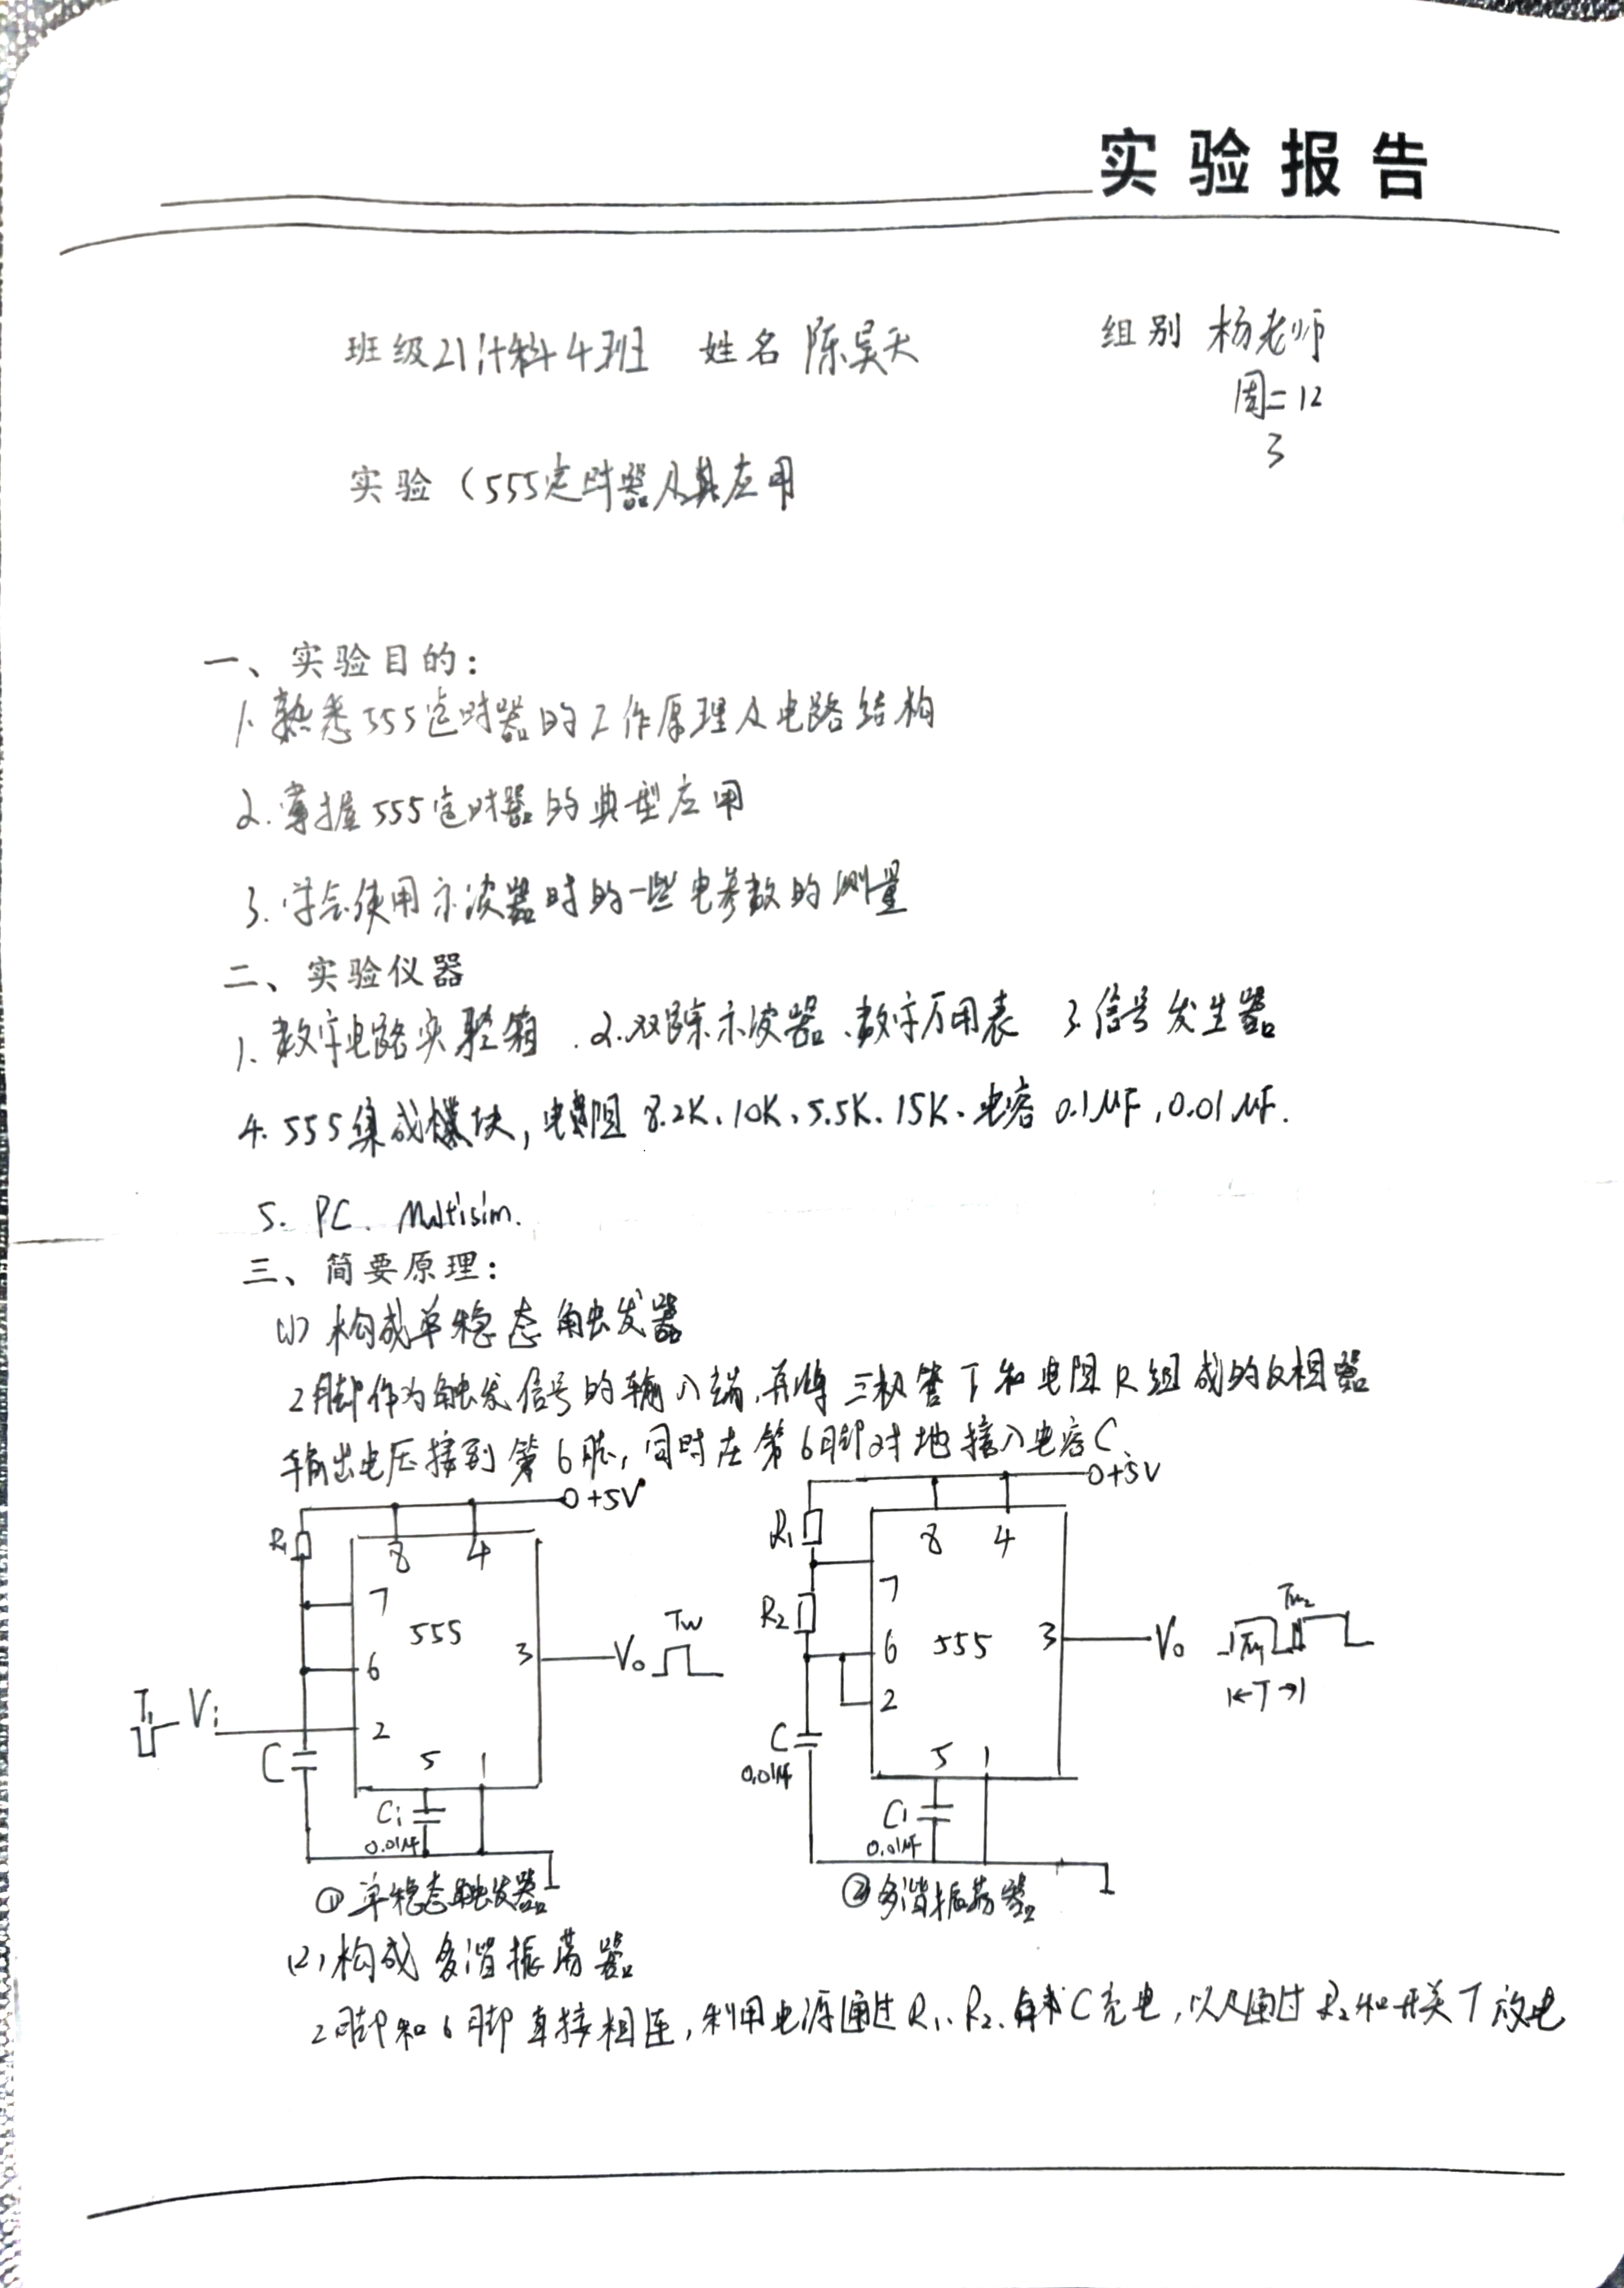 实验报告
班级 21计科4班 姓名 陈昊天 组别 杨老师
周二 12
3
实验(555定时器及其应用
一、实验目的:
1. 熟悉555定时器的工作原理及电路结构
2. 掌握555定时器的典型应用
3. 学会使用示波器时的一些电参数的测量
二、实验仪器
1. 数字电路实验箱. 2. 双踪示波器、数字万用表 3. 信号发生器
4. 555集成模块, 电阻 8.2K、10K、5.5K、15K、电容 0.1MF, 0.01MF.
5. PC. Multisim.
三、简要原理:
(1) 构成单稳态触发器
2脚作为触发信号的输入端, 并将三极管T和电阻R组成的反相器
输出电压接到第6脚, 同时在第6脚对地接入电容C、
R 8 4 +5V
7
555
6
2
3
5 1
Ti Vi
C
Ci
0.01MF
Vo
Tw
①单稳态触发器
R1 8 4 +5V
7
R2
6
555
2
3
5 1
C
0.01MF
C1
0.01MF
Vo
Tw2
T
②多谐振荡器
(2) 构成多谐振荡器
2脚和6脚直接相连, 利用电源通过R1、R2、C充电, 以及通过R2和开关T放电